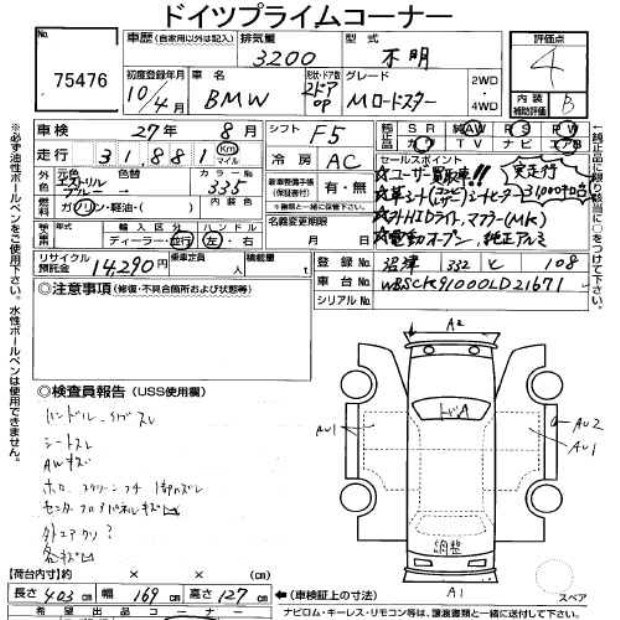 ドイツプライムコーナー
No.
75476
車歴(自家用以外は記入)
排気量
3200
型式
不明
評価点
4
初度登録年月
10/4月
車名
BMW
形状・ドア数
2ドア
OP
グレード
Mロードスター
2WD
・
4WD
内装
補助評価
B
車検
27年 8月
シフト
F5
純正品
SR 純AW RS PW
カワ TV ナビ エアB
走行
31,881
Km
マイル
冷房
AC
セールスポイント
☆ユーザー買取車!!
実走行
31,000キロ台
☆革シート(コンビレザー)シートヒーター
☆外HIDライト,マフラー(MK)
☆電動オープン,純正アルミ
外色
元色
エストリル
ブルー
色替
→
カラーNo.
335
(保証書付)
有・無
※書類と一緒に保管下さい。
燃料
ガソリン・軽油・( )
内装色
名義変更期限
月 日
年式
輸入区分
ディーラー・並行
ハンドル
左・右
リサイクル
預託金
14,290円
乗車定員
人
積載量
t
登録No.
沼津 332 と 108
車台No.
WBSCK91000LD21671
シリアルNo.
◎注意事項(修復・不具合箇所および状態等)
※必ず油性ボールペンをご使用下さい。水性ボールペンは使用できません。
←純正品に限り該当に○をつけて下さい。
◎検査員報告(USS使用欄)
ハンドル
シートスレ
AWキズ
ホロ スクリーン
センターフロアパネルキズ凹
外エアクリ?
各キズ凹
A2
トビA
AU1
AU2
AU1
調整
A1
スペア
【荷台内寸】約 × × (cm)
長さ 403 cm 幅 169 cm 高さ 127 cm
←(車検証上の寸法)
希望出品コーナー
ナビロム・キーレス・リモコン等は、譲渡書類と一緒に送付して下さい。